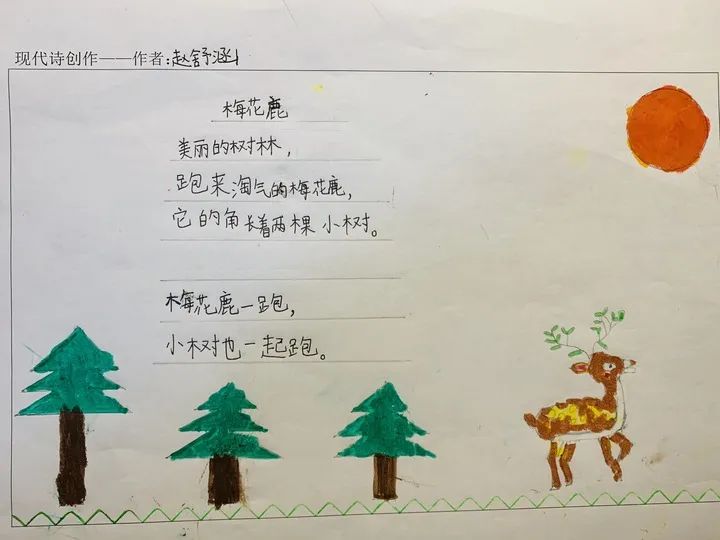 现代诗创作——作者:赵舒涵
梅花鹿
美丽的树林，
跑来淘气的梅花鹿，
它的角长着两棵小树。
梅花鹿一跑，
小树也一起跑。